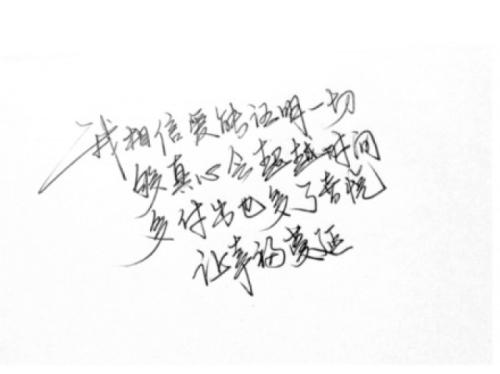 我相信爱能证明一切
够真心会超越时间
多付出也多了喜悦
让幸福蔓延